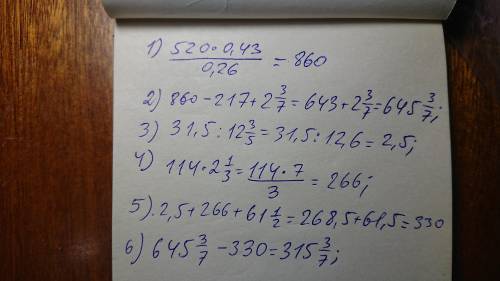 1) 520·0,43/0,26 = 860
2) 860-217+2 3/7=643+2 3/7=645 3/7;
3) 31,5:12 3/5=31,5:12,6=2,5;
4) 114·2 1/3=114·7/3=266;
5).2,5+266+61 1/2=268,5+61,5=330
6) 645 3/7 -330=315 3/7;